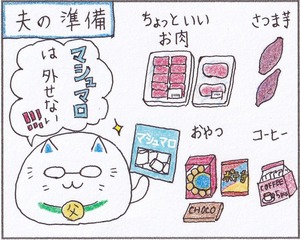 夫の準備
ちょっといい
お肉
さつま芋
マシュマロ
は外せない
!!!
マシュマロ
おやつ
コーヒー
父
CHOCO
COFFEE